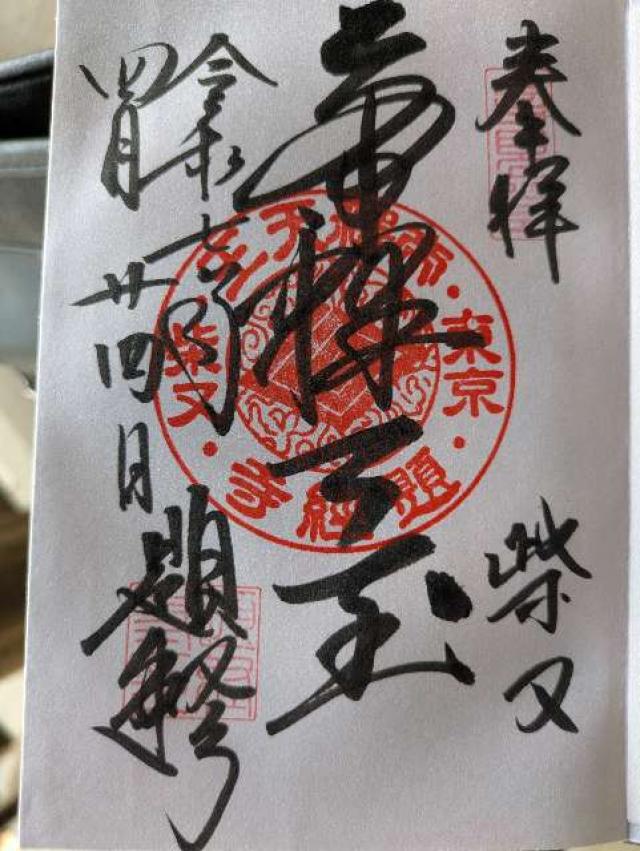 奉拝
柴又
帝釋天王
令和七年
四月廿四日
題経寺
帝釋天王
東京
題經寺
柴又